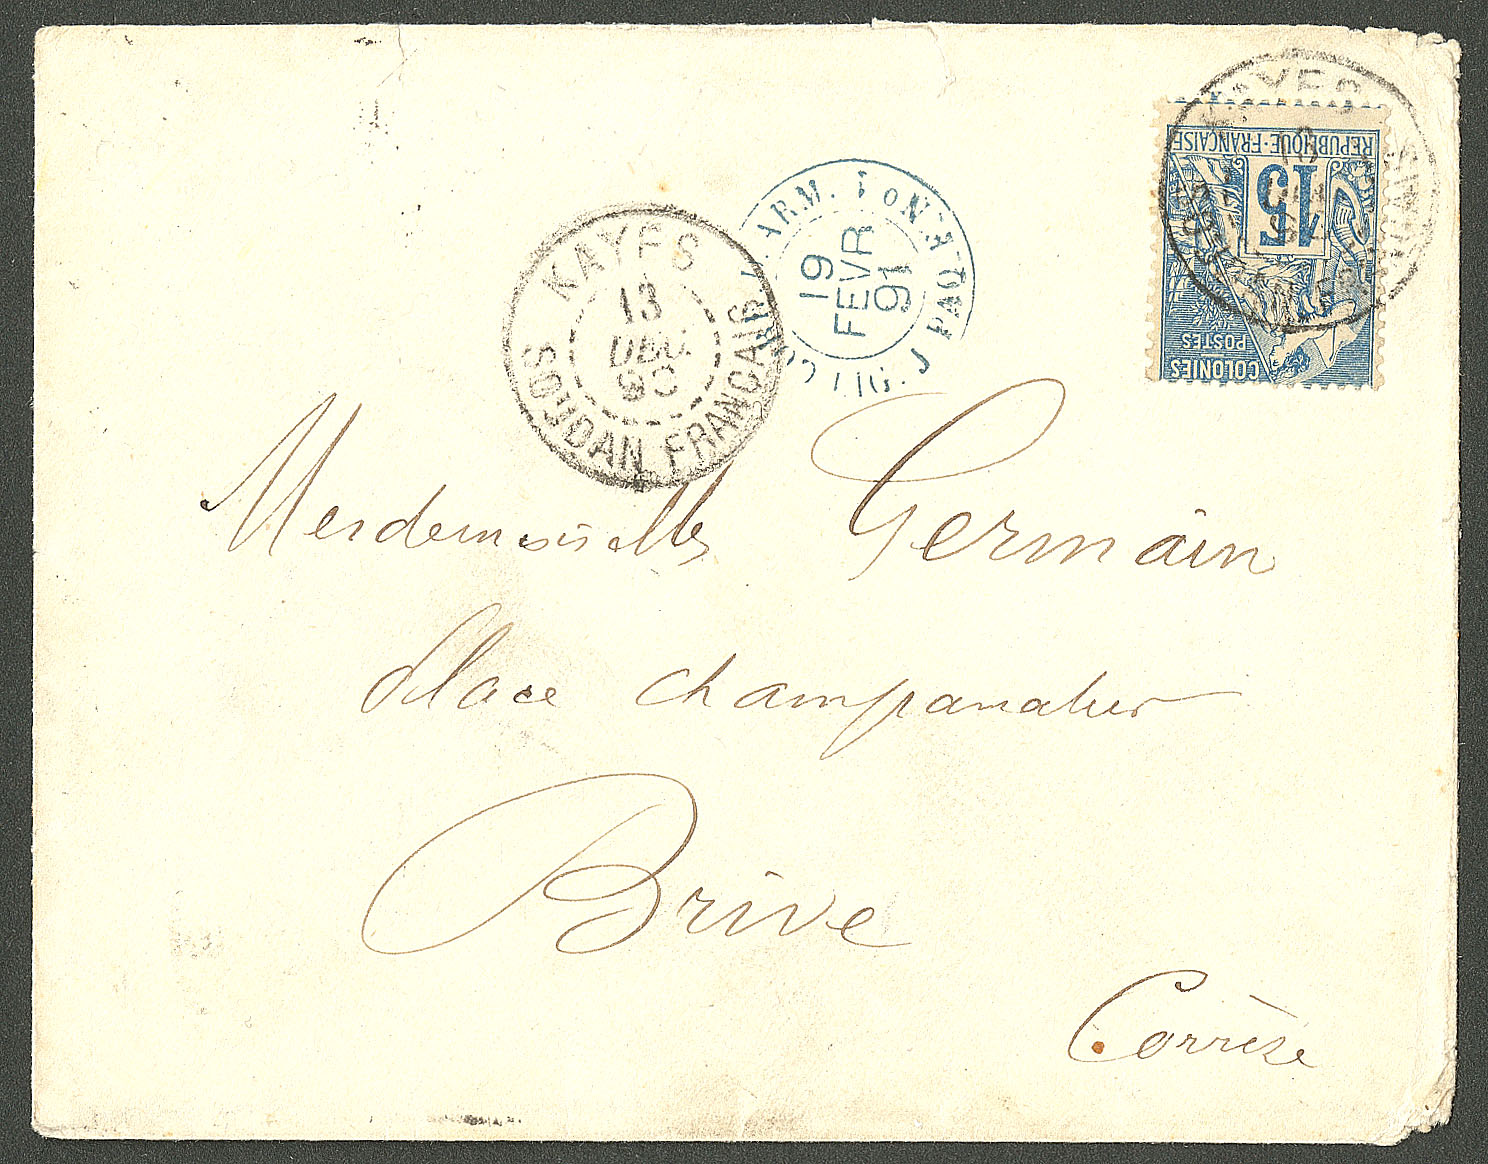 KAYES
13
DEC.
90
SOUDAN FRANÇAIS
CORR. D. ARM. LIG. J PAQ. FR.
19
FEVR
91
KAYES
RÉPUBLIQUE-FRANÇAISE
15
POSTES
COLONIES
Mesdemoiselles Germain
Place champanatier
Brive
Corrèze